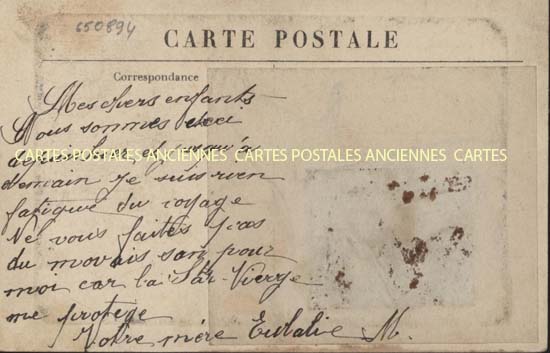 650894
CARTE POSTALE
Correspondance
Mes chers enfants
Nous sommes ici
et jusqu'a
CARTES POSTALES ANCIENNES CARTES POSTALES ANCIENNES CARTES
demain je suis rien
fatigué du voyage
Ne vous faites pas
du movais san pour
moi car la Ste Vierge
me protege
Votre mère Eulalie M.